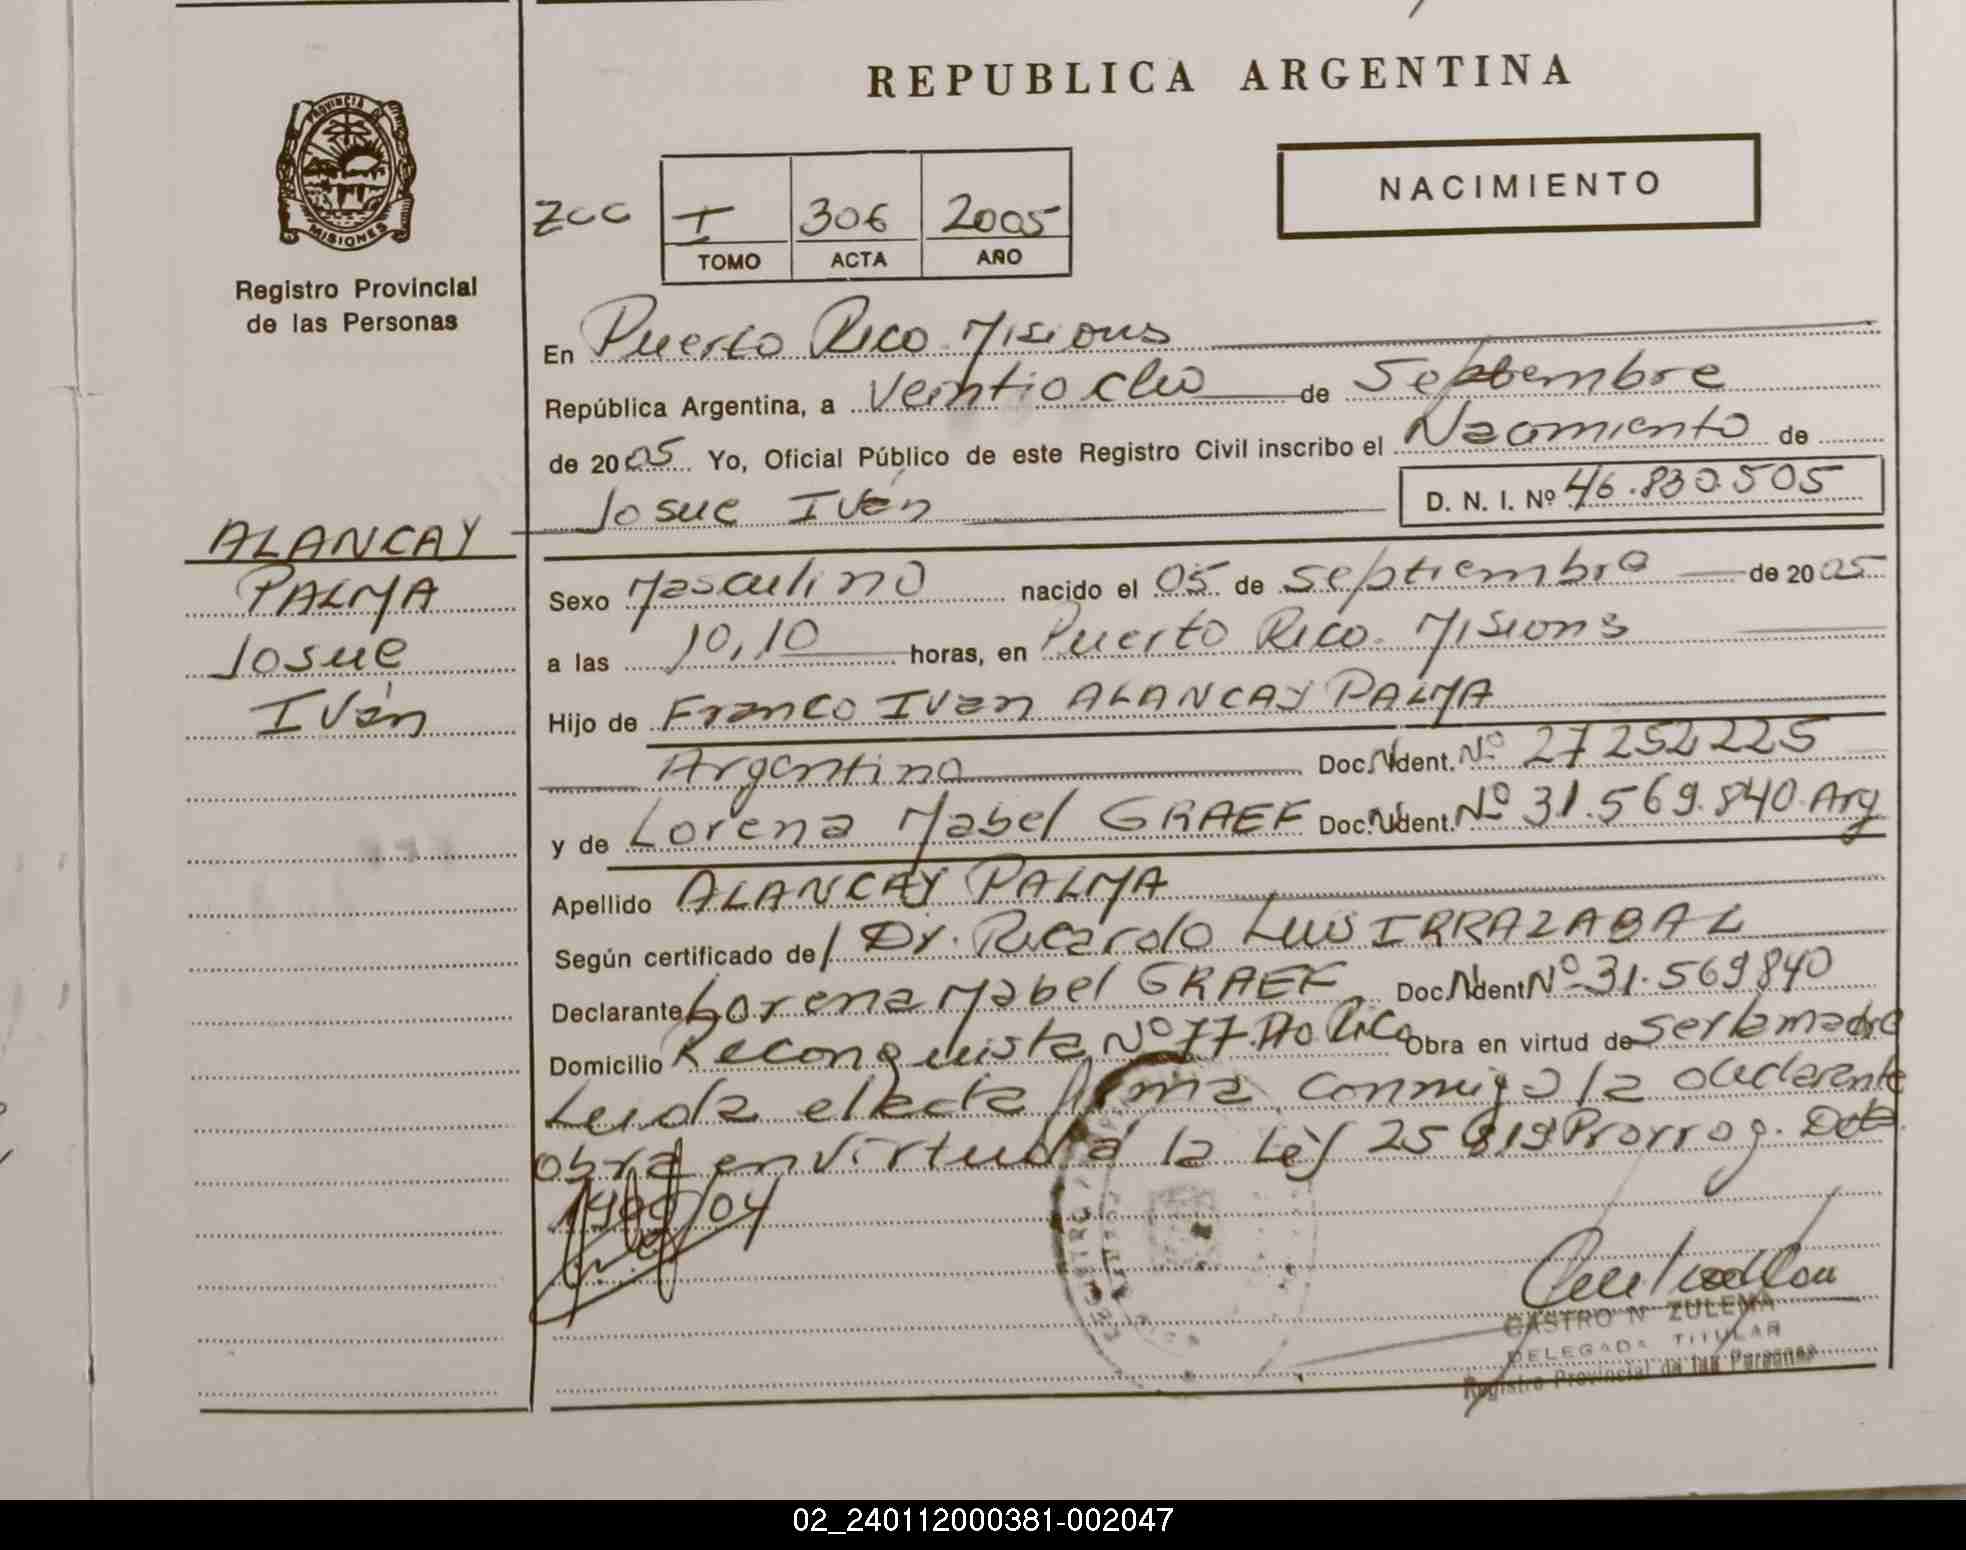 REPUBLICA ARGENTINA
PROVINCIA DE
MISIONES
Registro Provincial
de las Personas
NACIMIENTO
ZCC
I 306 2005
TOMO ACTA AÑO
En Puerto Rico Misions
República Argentina, a Veintiocho de Septiembre
de 2005 Yo, Oficial Público de este Registro Civil inscribo el Nacimiento de
Josue Iván D. N. I. Nº 46.830.505
ALANCAY
PALMA
Josue
Iván
Sexo Masculino nacido el 05 de septiembre de 2005
a las 10,10 horas, en Puerto Rico Misions
Hijo de Franco Ivan ALANCAY PALMA
Argentino Doc. Ident. Nº 27252225
y de Lorena Mabel GRAEF Doc. Ident. Nº 31.569.840 Arg
Apellido ALANCAY PALMA
Según certificado de/ Dr. Ricardo Luis IRRAZABAL
Declarante Lorena Mabel GRAEF Doc. Ident Nº 31.569840
Domicilio Reconquista Nº 77 Pto Rico Obra en virtud de ser la madre
Leida el acta firma conmigo la declarante
obra en virtud a la Ley 25 819 Prorrog. Dcto
1499/04
CASTRO N ZULEMA
DELEGADA TITULAR
Registro Provincial de las Personas
02_240112000381-002047